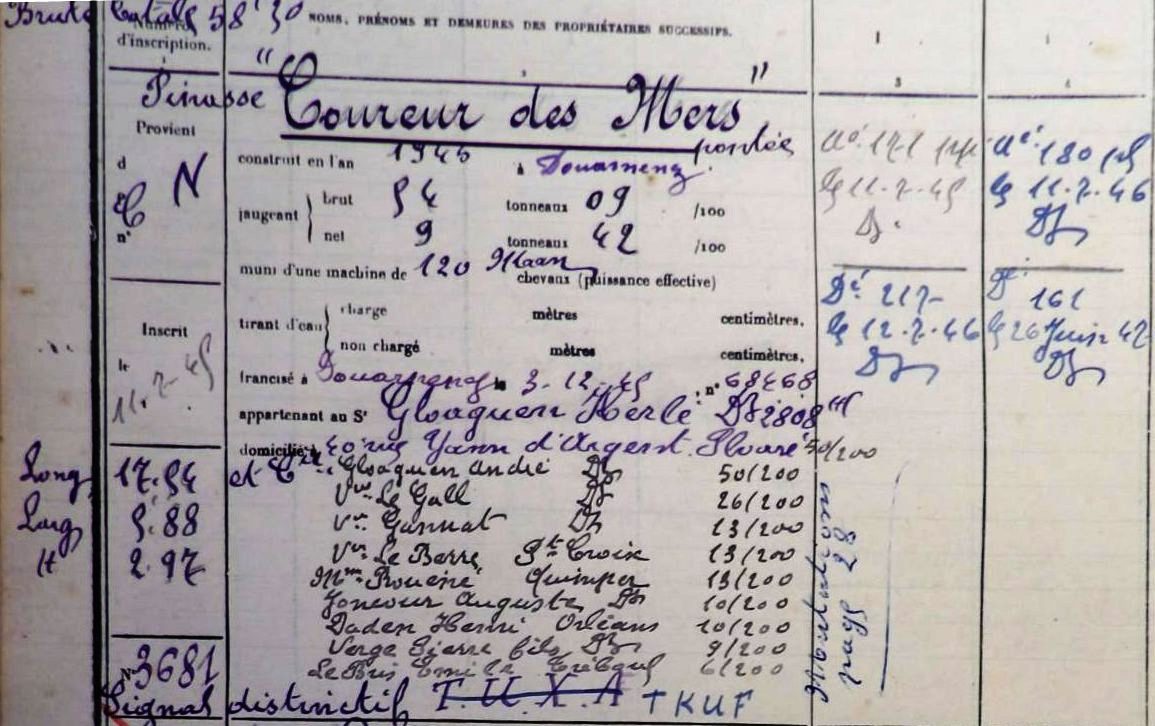 Brute totale 58'30
Numéro d'inscription.
NOMS, PRÉNOMS ET DEMEURES DES PROPRIÉTAIRES SUCCESSIFS.
Pinasse "Coureur des Mers"
pontée
Provient
d N
C
n°
construit en l'an 1945 à Douarnenez
jaugeant brut 54 tonneaux 09 /100
net 9 tonneaux 42 /100
muni d'une machine de 120 Maan chevaux (puissance effective)
Inscrit
le 11-7-45
tirant d'eau
chargé mètres centimètres.
non chargé mètres centimètres.
francisé à Douarnenez le 3-12-45 n° 68468
appartenant au Sr Gloaguen Herlé Dz 2808
domicilié à 40 rue Yann d'Argent Ploaré 50/200
et Cie: Gloaguen André Dz 50/200
Vve Le Gall Dz 26/200
Vve Gannat Dz 13/200
Vve Le Berre Ste Croix 13/200
Mme Quimper 13/200
Joncour Auguste Dz 10/200
Daden Henri Orléans 10/200
Pierre fils Dz 9/200
Le Bris Emile Tréboul 6/200
Long 17.54
Larg 5.88
H 2.97
N° 3681
Signal distinctif T.U.X.A TKUF
3
Aé. 171
le 11-7-45
Dz.
Dé 217
le 12-7-46
Dz
4
Aé 180
le 11-7-46
Dz
Dé 161
le 26 Juin 47
Dz
Mutations
page 28